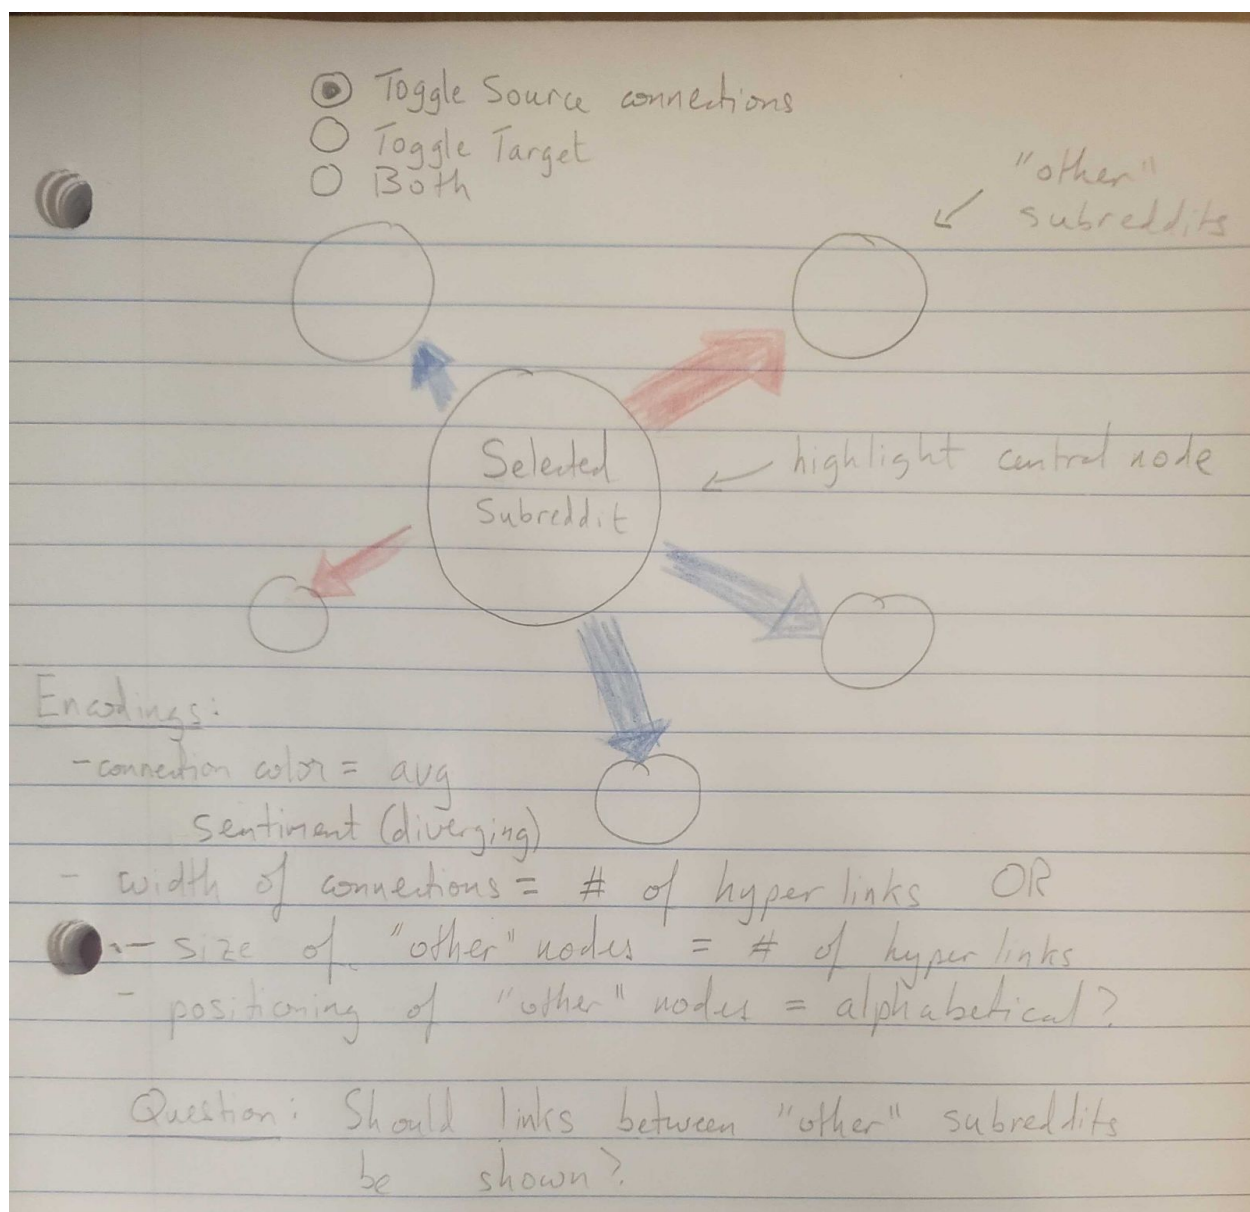 Toggle Source connections
Toggle Target
Both
"other"
subreddits
Selected
Subreddit
highlight central node
Encodings:
- connection color = avg
sentiment (diverging)
- width of connections = # of hyper links OR
- size of "other" nodes = # of hyper links
- positioning of "other" nodes = alphabetical?
Question: Should links between "other" subreddits
be shown?